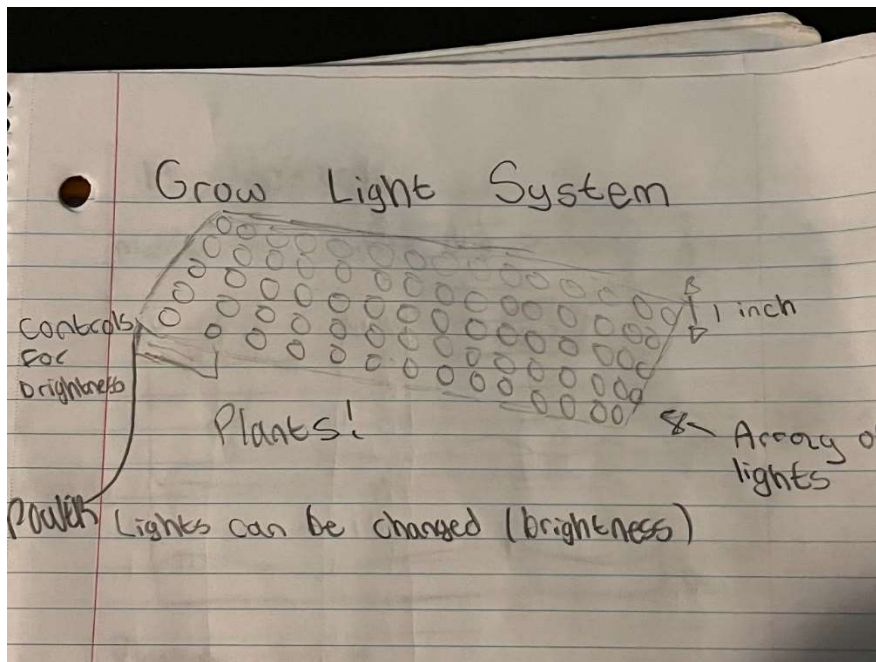 Grow Light System
1 inch
Controls
For
brightness
Plants!
Array o
lights
Power
Lights can be changed (brightness)